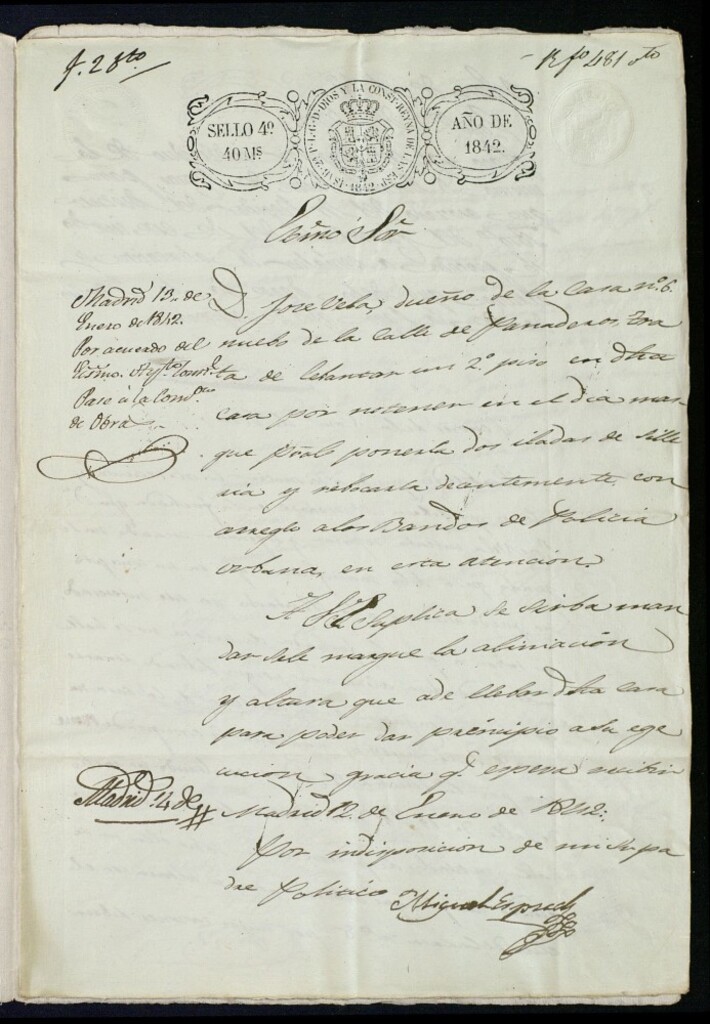 f. 28to
Rfo 481 to
SELLO 4º
40 Ms
ISAB. 2ª P. L. G. D. DIOS Y LA CONST. REYNA DE LAS ESP.
1842
AÑO DE
1842.
Ecsmo Sor
Madrid 13 de
Enero de 1842.
Por acuerdo del
Escmo. Aytto Const.l
Pase à la Comon
de Obras
D. Jose Veba, dueño de la Casa nº 6
nuebo de la Calle de Panaderos, tra
ta de lebantar un 2º piso en dha
casa por no tener en el dia mas
que pral ponerla dos iladas de sille
ria y rebocarla decentemente con
arreglo a los Bandos de Policia
urbana, en esta atencion.
A V.E. Suplica se sirba man
dar se le marque la aliniación
y altura que ade llebar dha casa
para poder dar principio a la ege
cucion, gracia q.e espera recibir
Madrid 12 de Enero de 1842.
Por indisposicion de mi Sr pa
dre Politico Miguel
Madrid 14 de